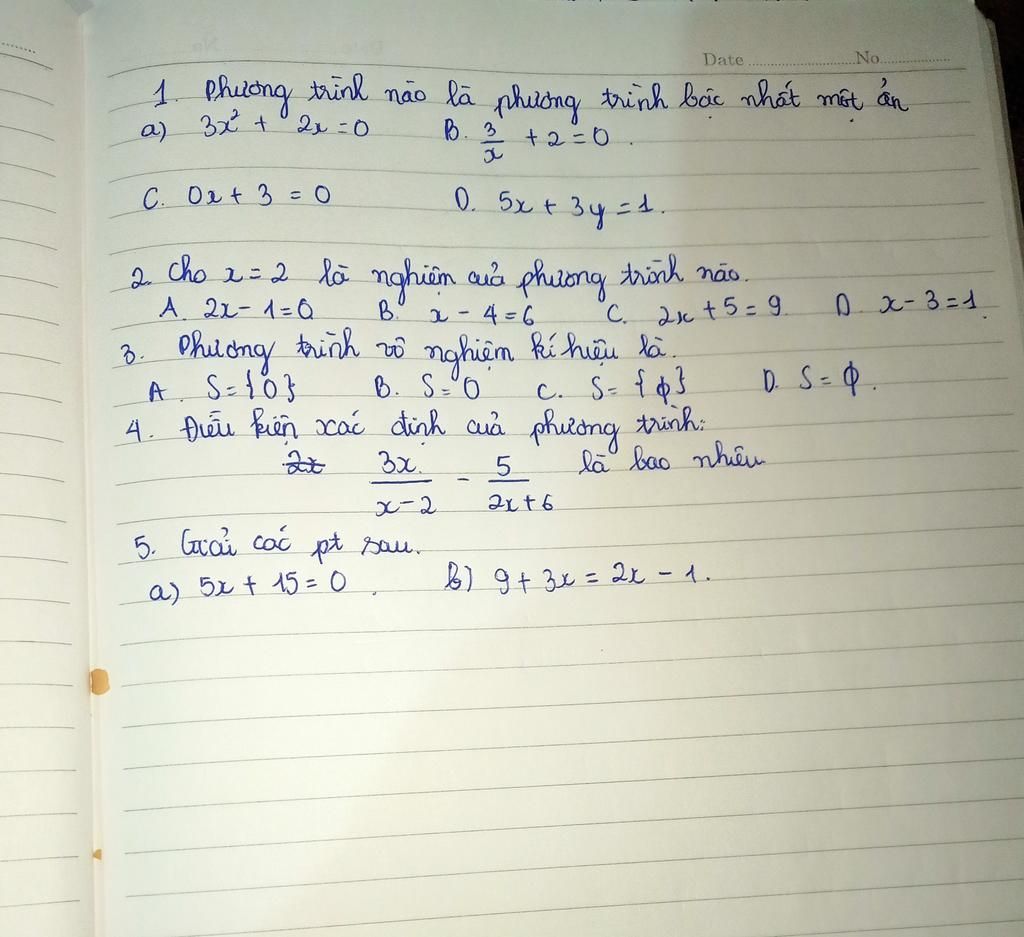 Date ........................ No. ..................
1. Phương trình nào là phương trình bậc nhất một ẩn
a) 3x² + 2x = 0 B. 3/x + 2 = 0.
C. 0x + 3 = 0 D. 5x + 3y = 1.
2. Cho x = 2 là nghiệm của phương trình nào.
A. 2x - 1 = 0 B. x - 4 = 6 C. 2x + 5 = 9. D. x - 3 = 1.
3. Phương trình vô nghiệm kí hiệu là.
A. S = {0} B. S = 0 C. S = {ϕ} D. S = ϕ.
4. Điều kiện xác định của phương trình:
2x 3x/(x-2) - 5/(2x+6) là bao nhiêu
5. Giải các pt sau.
a) 5x + 15 = 0. b) 9 + 3x = 2x - 1.